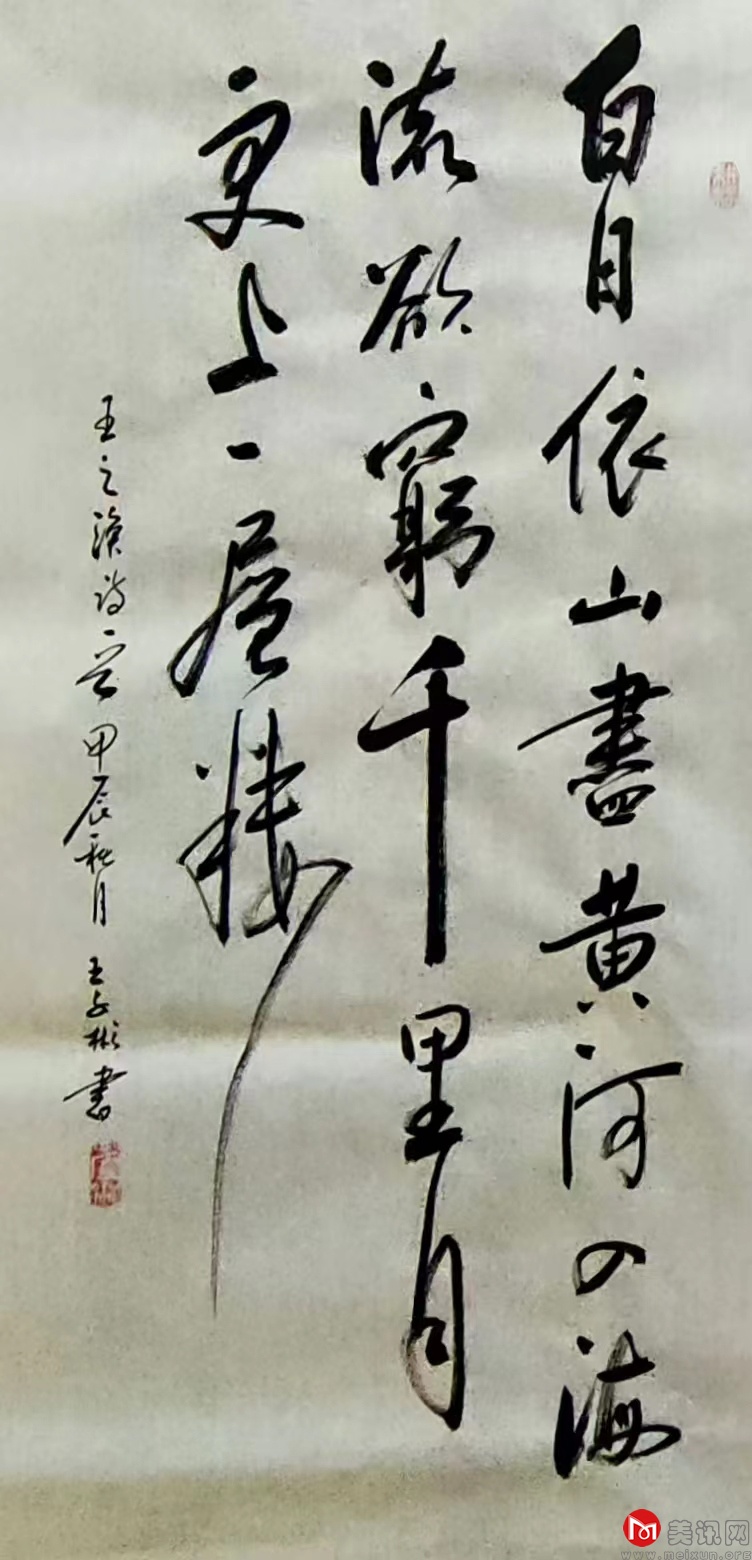 白日依山盡黄河入海
流欲窮千里目
更上一層樓
王之渙詩一首甲辰秋月 王彬書
美讯网
www.meixun.org